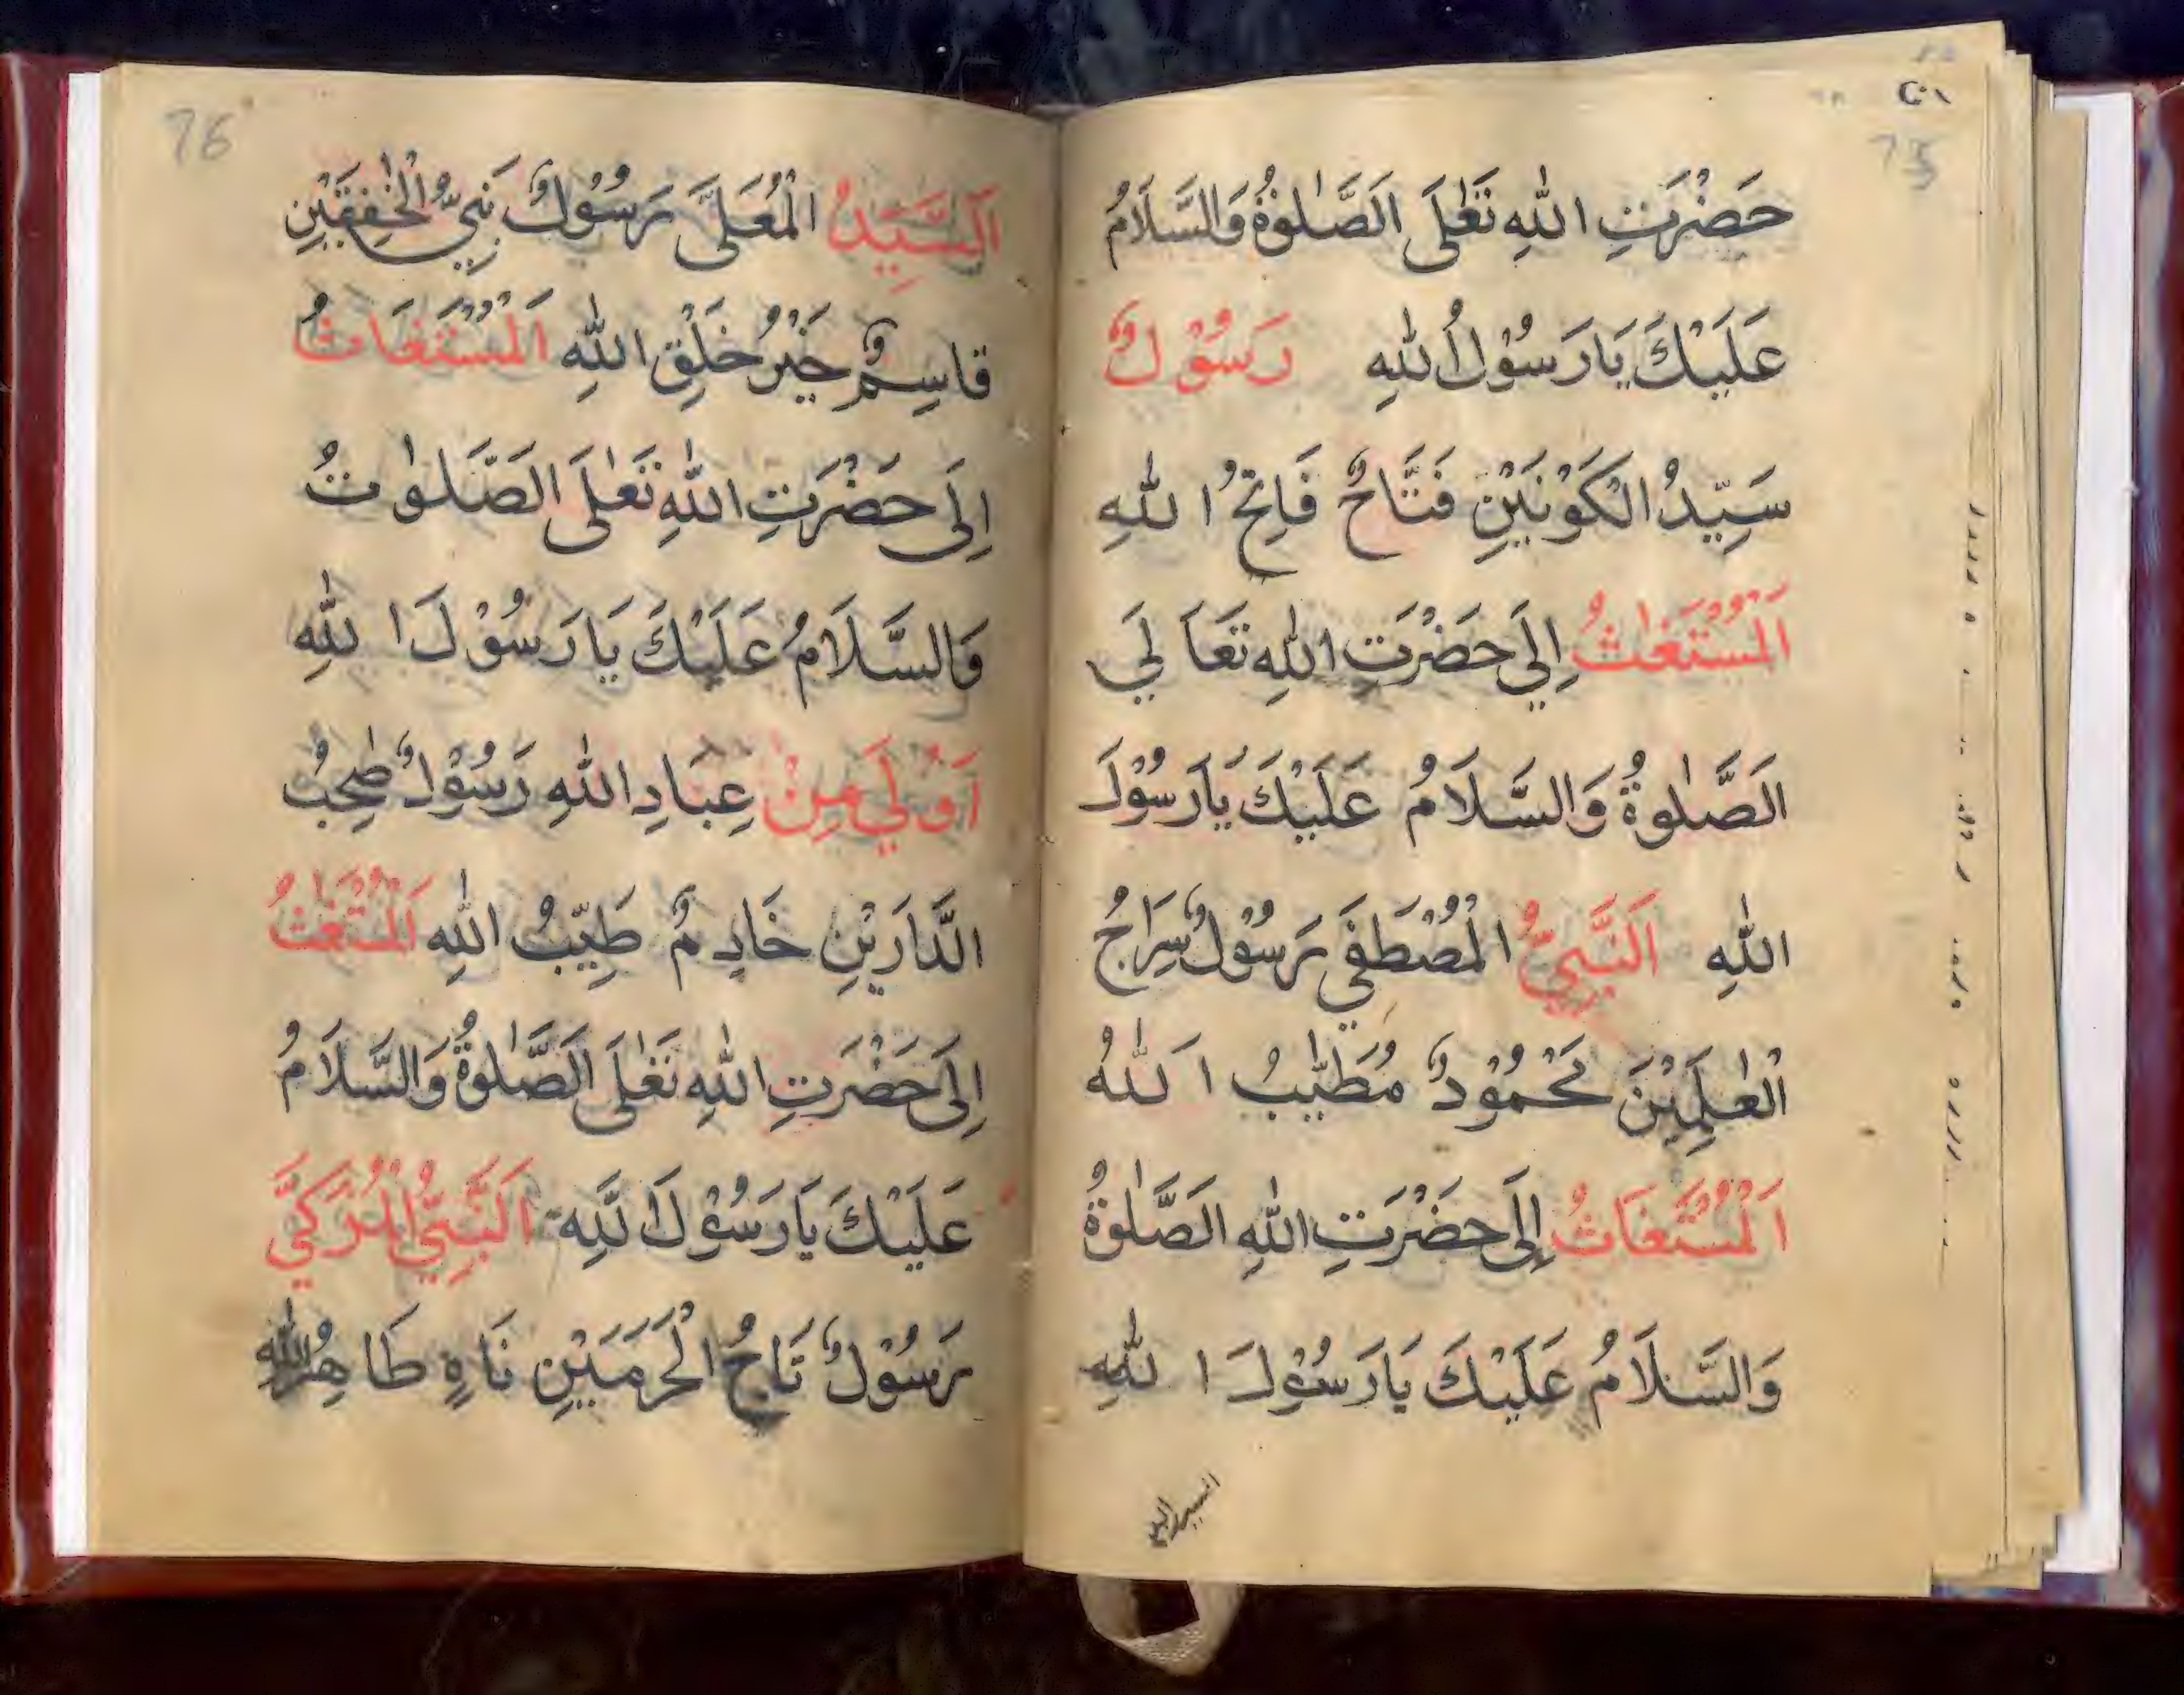 حَضْرَتِ اللّٰهِ تَعٰلَى الصَّلٰوةُ وَالسَّلَامُ
عَلَيْكَ يَارَسُوْلُ اللّٰهِ رَسُوْلٌ
سَيِّدُ الْكَوْنَيْنِ فَتَّاحٌ فَاتِحُ اللّٰهِ
اَلْمُسْتَغٰثُ اِلٰي حَضْرَتِ اللّٰهِ تَعَا لَي
الصَّلٰوةُ وَالسَّلَامُ عَلَيْكَ يَارَسُوْلَ
اللّٰهِ اَلنَّبِيُّ الْمُصْطَفَي رَسُوْلٌ سِرَاجُ
الْعٰلَمِيْنَ مَحْمُوْدٌ مُطَيَّبُ اَللّٰهُ
اَلْمُسْتَغَاثُ اِلَى حَضْرَتِ اللّٰهِ الصَّلٰوةُ
وَالسَّلَامُ عَلَيْكَ يَارَسُوْلَ اللّٰهِ
76
اَلسَّيِّدُ الْمُعَلَّى رَسُوْلٌ نَبِيُّ الْخٰفِقَيْنِ
قَاسِمٌ خَيْرُ خَلْقِ اللّٰهِ اَلْمُسْتَغَاثُ
اِلَى حَضْرَتِ اللّٰهِ تَعٰلَى الصَّلٰوتُ
وَالسَّلَامُ عَلَيْكَ يَارَسُوْلَ اللّٰهِ
اَوْلَي مِنْ عِبَادِ اللّٰهِ رَسُوْلٌ صٰحِبُ
الدَّارَيْنِ خَادِمٌ طَيِّبُ اللّٰهِ اَلْمُسْتَغٰثُ
اِلَى حَضْرَتِ اللّٰهِ تَعٰلَى الصَّلٰوةُ وَالسَّلَامُ
عَلَيْكَ يَارَسُوْلَ اللّٰهِ اَلنَّبِيُّ الْمُزَكَّي
رَسُوْلٌ تَاجُ الْحَرَمَيْنِ نَاهٍ طَاهِرُ اللّٰهِ